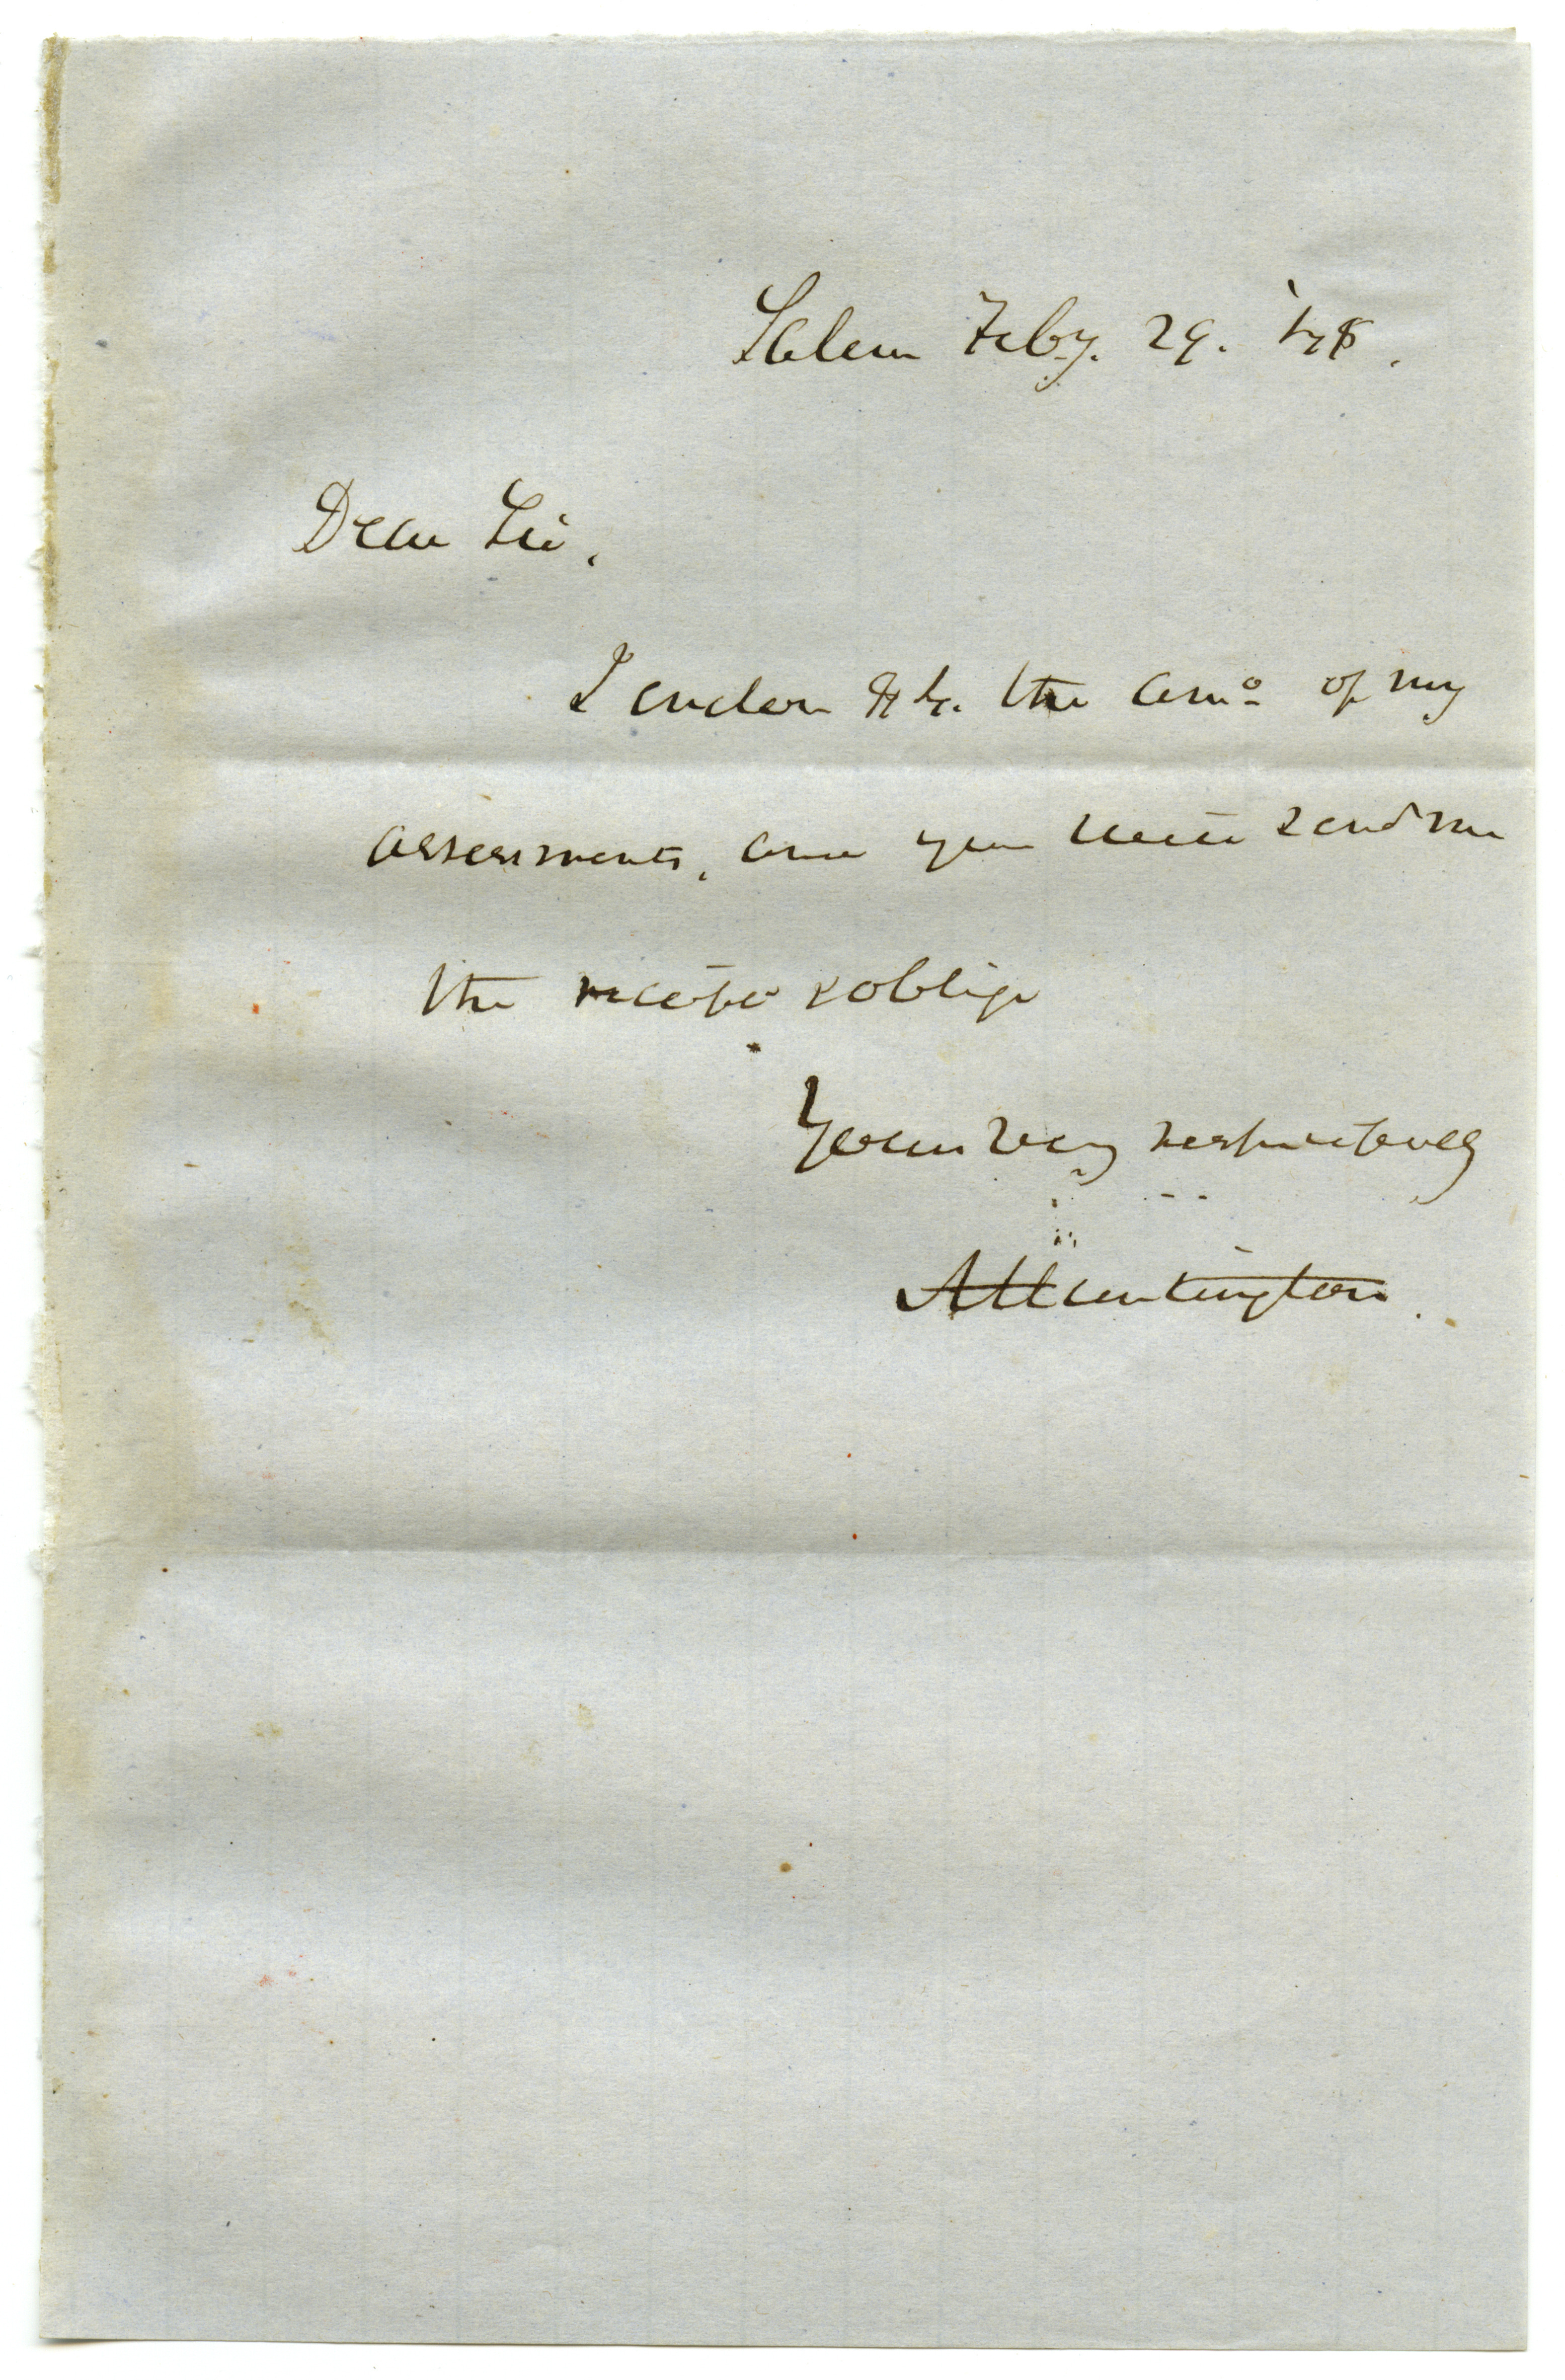 Salem Feby. 29. '48.
Dear Sir,
I enclose $ the amo of my
assessments, and you will send me
the receipt & oblige
Yours very respectfully
A Huntington.